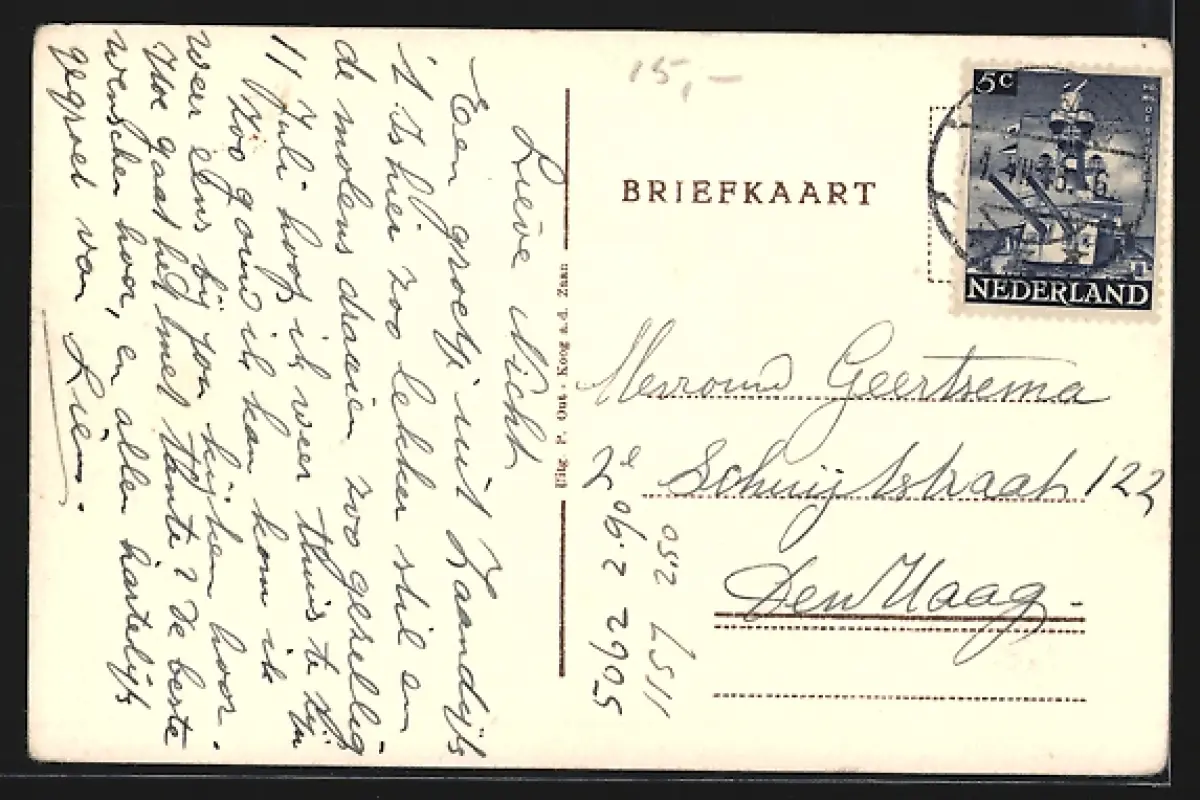 15,-
5c
NEDERLAND
BRIEFKAART
Lieve Nicht
Een groetje uit Zaandijk
't Is hier zoo lekker stil en
de molens draaien zoo gezellig
11 Juli hoop ik weer thuis te zijn
Zoo gauw ik kan kom ik
weer eens bij jou kijken hoor.
Hoe gaat het met tante? De beste
wenschen hoor, en allen hartelijk
gegroet van Lien.
Uitg. P. Out - Koog a.d. Zaan
Mevrouw Geertsema
2e Schuijtstraat 122
Den Haag.